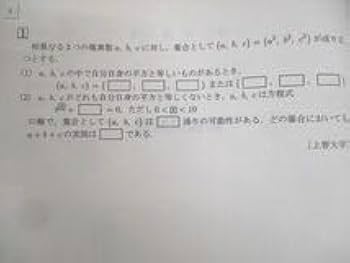 1
相異なる3つの複素数 a, b, c に対し、集合として {a, b, c} = {a², b², c²} が成り立
つとする。
(1) a, b, c の中で自分自身の平方と等しいものがあるとき、
{a, b, c} = {□, □, □} または {□, □, □}
(2) a, b, c がどれも自分自身の平方と等しくないとき、a, b, c は方程式
= 0, ただし 6 < < 10
の解で、集合として {a, b, c} は □ 通りの可能性がある。どの場合においても
a + b + c の実部は □ である。
[上智大学]